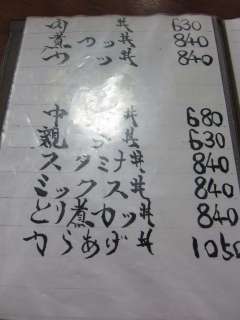 肉丼 630
煮カツ丼 840
カツ丼 840
中丼 680
親子丼 630
スタミナ丼 840
ミックス丼 840
とり煮カツ丼 840
からあげ丼 1050